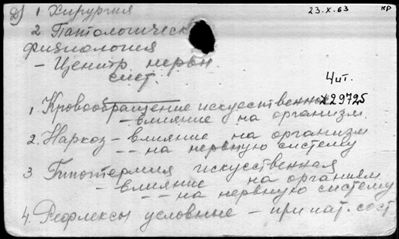 д) 1 Хирургия 23.X.63 кр
2 Патологическ
физиология
- Центр. нервн
сист.
4 ит.
1. Кровообращение искусственное x29725
- влияние на организм
2. Наркоз - влияние на организм
- - на нервную систему
3 Гипотермия искуственная
- влияние на организм
- - на нервную систему
4. Рефлексы условные - при пат. сост